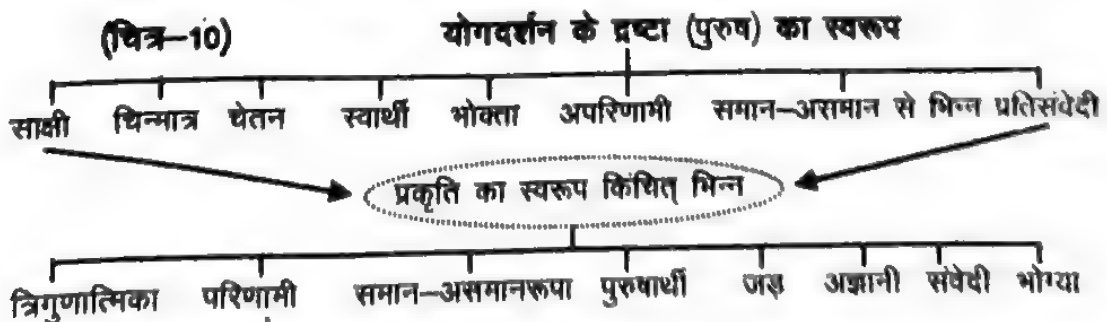 (चित्र-10) योगदर्शन के द्रष्टा (पुरुष) का स्वरूप
साक्षी चिन्मात्र चेतन स्वार्थी भोक्ता अपरिणामी समान-असमान से भिन्न प्रतिसंवेदी
प्रकृति का स्वरूप किंचित् भिन्न
त्रिगुणात्मिका परिणामी समान-असमानरूपा पुरुषार्थी जड़ अज्ञानी संवेदी भोग्या